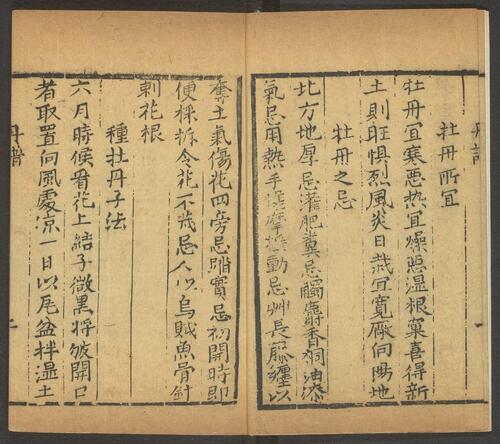 牡丹所宜
牡丹宜寒惡熱宜燥惡濕根窠喜得新
土則旺懼烈風炎日栽宜寬廠向陽地
牡丹之忌
北方地厚忌灌肥糞忌觸麝香桐油漆
氣忌用熱手搓摩搖動忌艸長藤纏以
奪土氣傷花四旁忌踏實忌初開時即
便採折令花不茂忌人以烏賊魚骨針
刺花根
種牡丹子法
六月時候看花上結子微黑將皴開口
者取置向風處凉一日以瓦盆拌濕土